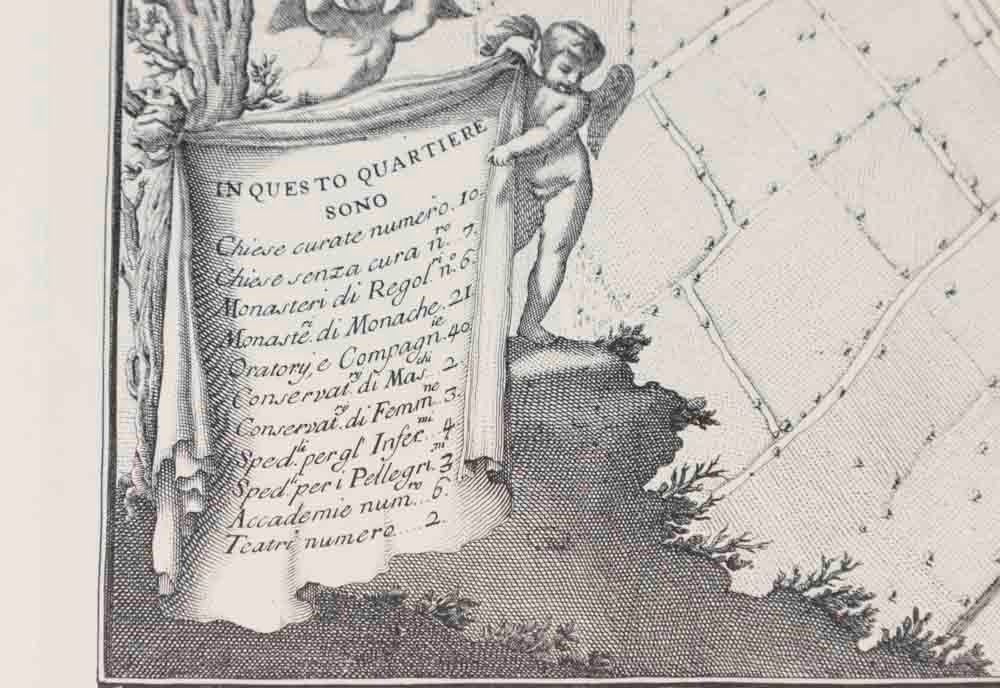 IN QUESTO QUARTIERE
SONO
Chiese curate numero. 10.
Chiese senza cura n.ro 7.
Monasteri di Regol.ri n.o 6.
Monaste.ri di Monache. 21
Oratorÿ, e Compagn.ie 40.
Conservat.ry di Mas.chi 2.
Conservat.ro di Femm.ne 3.
Sped.li per gl' Infer.mi 4.
Sped.li per i Pellegri.ni 3.
Accademie num.ro 6.
Teatri numero.... 2.